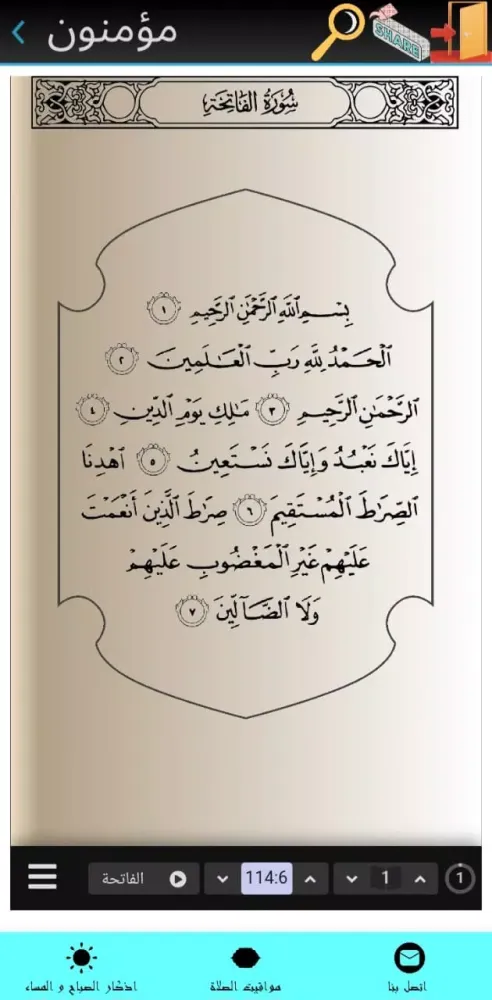 مؤمنون
SHARE
سُورَةُ الفَاتِحَةِ
بِسْمِ ٱللَّهِ ٱلرَّحْمَٰنِ ٱلرَّحِيمِ ١
ٱلْحَمْدُ لِلَّهِ رَبِّ ٱلْعَٰلَمِينَ ٢
ٱلرَّحْمَٰنِ ٱلرَّحِيمِ ٣ مَٰلِكِ يَوْمِ ٱلدِّينِ ٤
إِيَّاكَ نَعْبُدُ وَإِيَّاكَ نَسْتَعِينُ ٥ ٱهْدِنَا
ٱلصِّرَٰطَ ٱلْمُسْتَقِيمَ ٦ صِرَٰطَ ٱلَّذِينَ أَنْعَمْتَ
عَلَيْهِمْ غَيْرِ ٱلْمَغْضُوبِ عَلَيْهِمْ
وَلَا ٱلضَّآلِّينَ ٧
الفاتحة 114:6 1 1
اذكار الصباح و المساء مواقيت الصلاة اتصل بنا